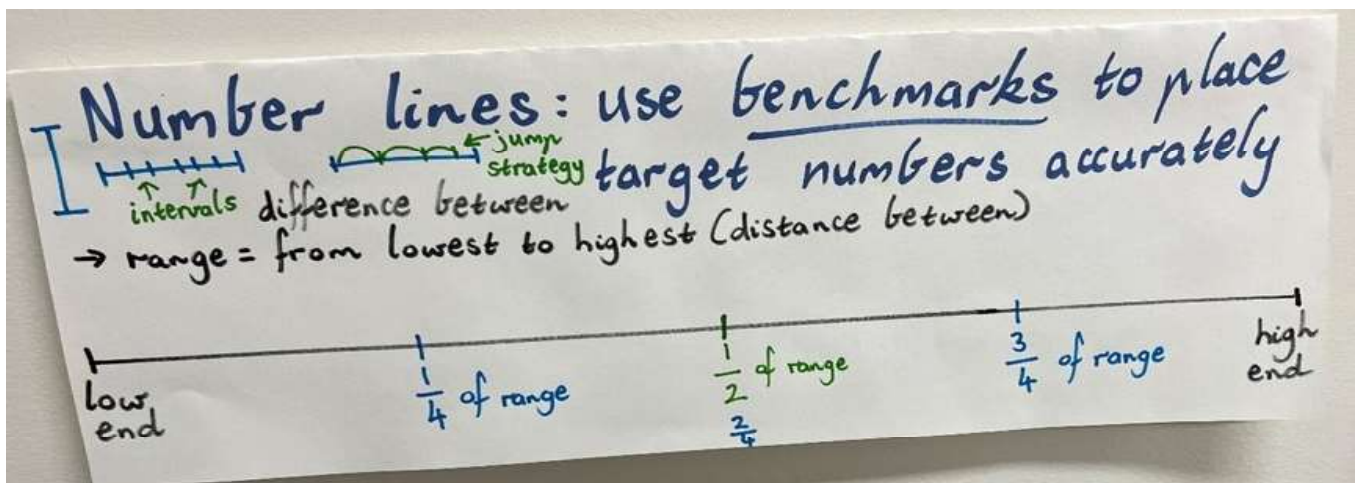 Number lines: use benchmarks to place
← jump
strategy target numbers accurately
↑ ↑
intervals difference between
→ range = from lowest to highest (distance between)
low end
1/4 of range
1/2 of range
2/4
3/4 of range
high end